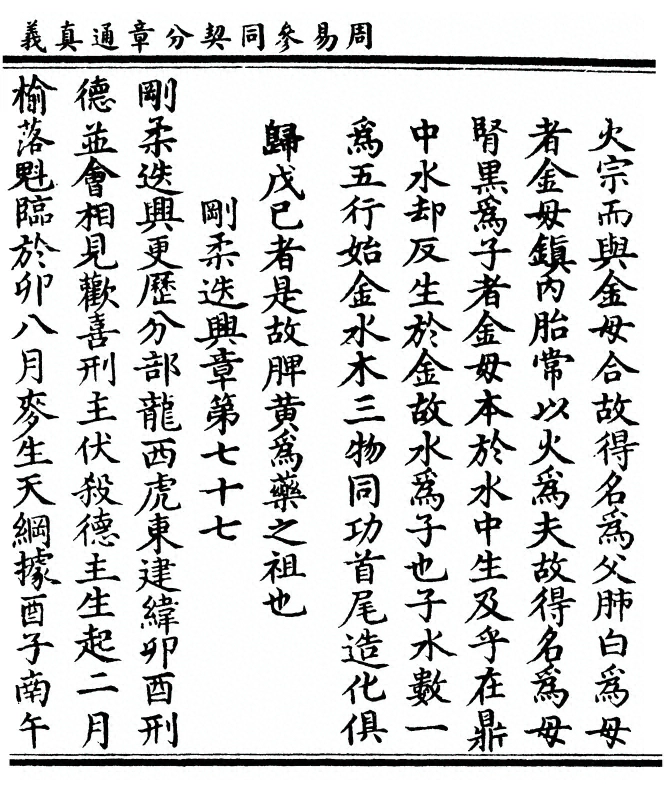 周易參同契分章通真義
火宗而與金母合故得名爲父肺白爲母
者金母鎮內胎常以火爲夫故得名爲母
腎黑爲子者金母本於水中生及乎在鼎
中水却反生於金故水爲子也子水數一
爲五行始金水木三物同功首尾造化俱
歸戊己者是故脾黄爲藥之祖也
剛柔迭興章第七十七
剛柔迭興更歷分部龍西虎東建緯卯酉刑
德並會相見歡喜刑主伏殺德主生起二月
榆落魁臨於卯八月麥生天綱據酉子南午